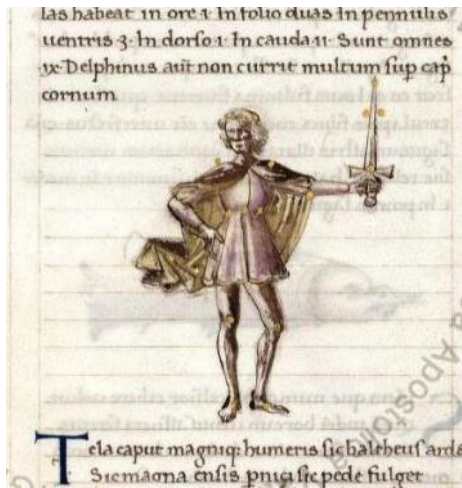 las habeat in ore · 1 · In folio duas In pennulis
uentris 3 · In dorso · 1 · In cauda · 11 · Sunt omnes
· ix · Delphinus aut̄ non currit multum sup̄ cap̄
cornum
Tela caput magniq; humeris sic baltheus arde
Sic magna ensis
sic pede fulget